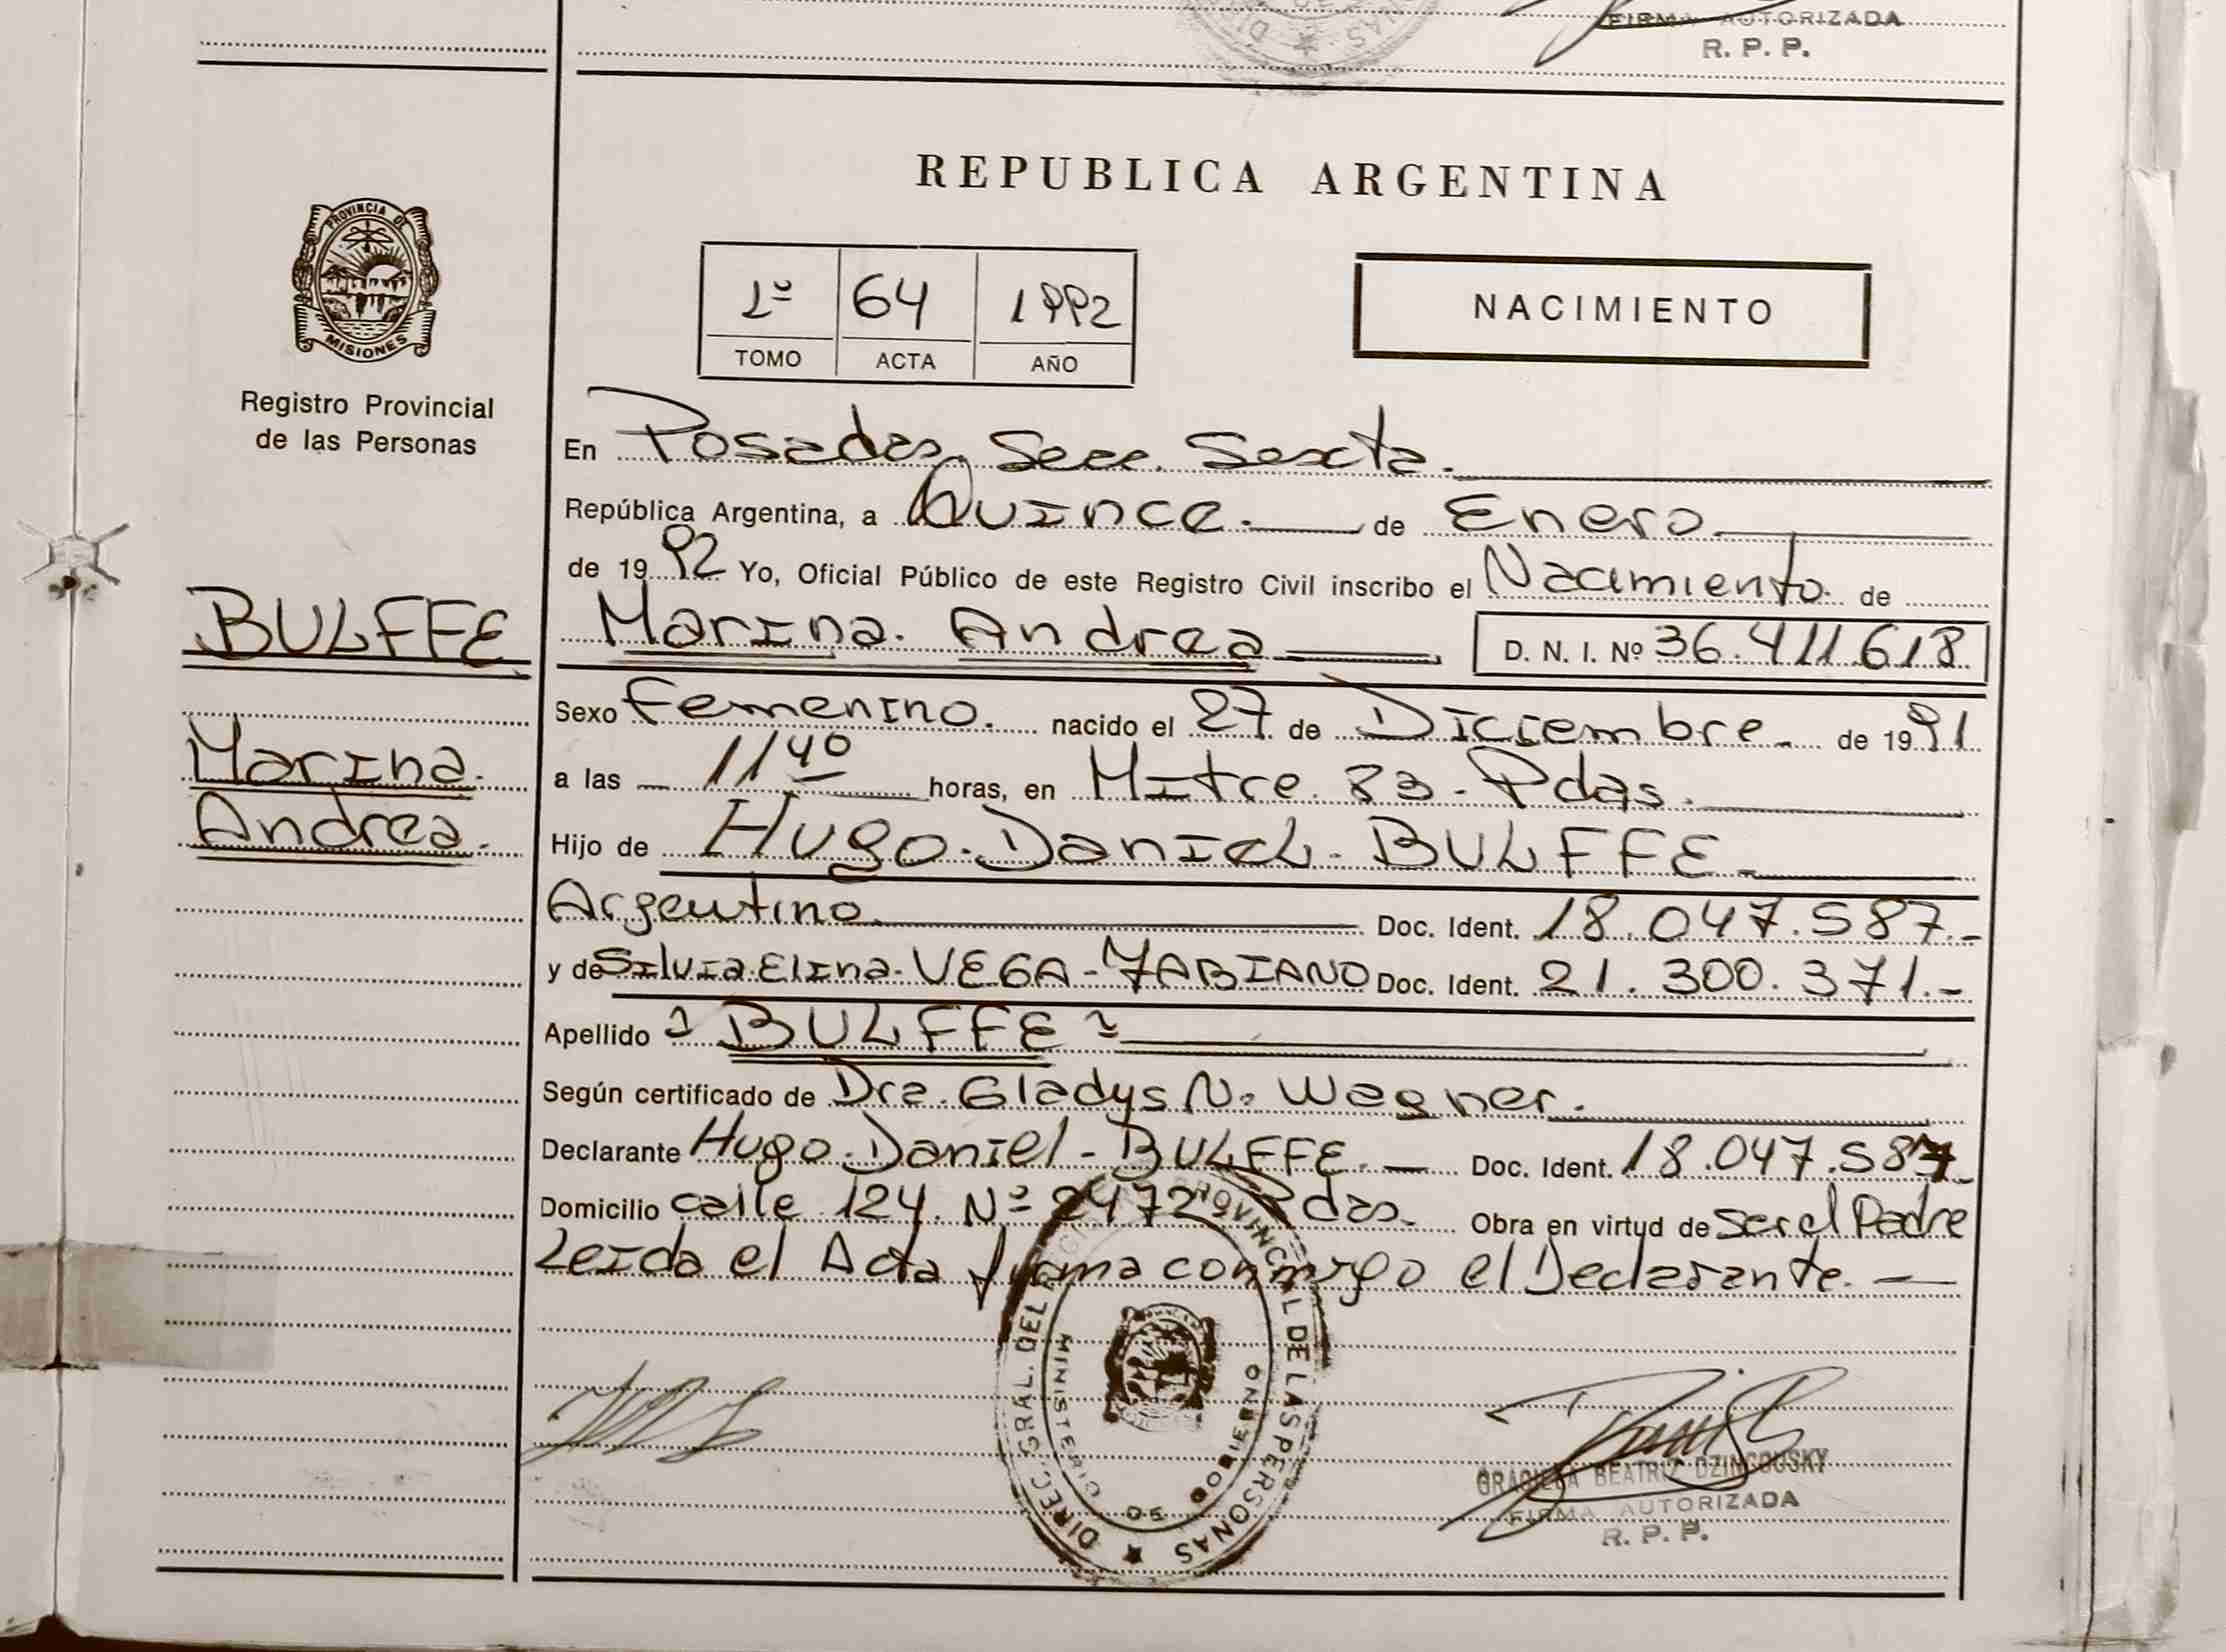 FIRMA AUTORIZADA
R. P. P.
REPUBLICA ARGENTINA
PROVINCIA DE
MISIONES
Registro Provincial
de las Personas
1º 64 1992
TOMO ACTA AÑO
NACIMIENTO
En Posadas, Secc. Sexta.
República Argentina, a Quince. de Enero
de 1992 Yo, Oficial Público de este Registro Civil inscribo el Nacimiento de
BULFFE
Marina. Andrea D. N. I. Nº 36.411.618
Sexo Femenino. nacido el 27 de Diciembre de 1991
Marina.
a las 11 40 horas, en Mitre 83 - Pdas.
Andrea.
Hijo de Hugo. Daniel - BULFFE
Argentino Doc. Ident. 18.047.587.-
y de Silvia. Elina. VEGA - FABIANO Doc. Ident. 21.300.371.-
Apellido BULFFE
Según certificado de Dra. Gladys N. Wagner.
Declarante Hugo. Daniel - BULFFE. Doc. Ident. 18.047.587
Domicilio calle 124. Nº 2472 Pdas. Obra en virtud de ser el Padre
Leida el Acta firma conmigo el Declarante.
DIREC. GRAL. DEL PROVINCIAL DE LAS PERSONAS
MINISTERIO DE GOBIERNO
GRACIELA BEATRIZ DZINCOUSKY
FIRMA AUTORIZADA
R. P. P.